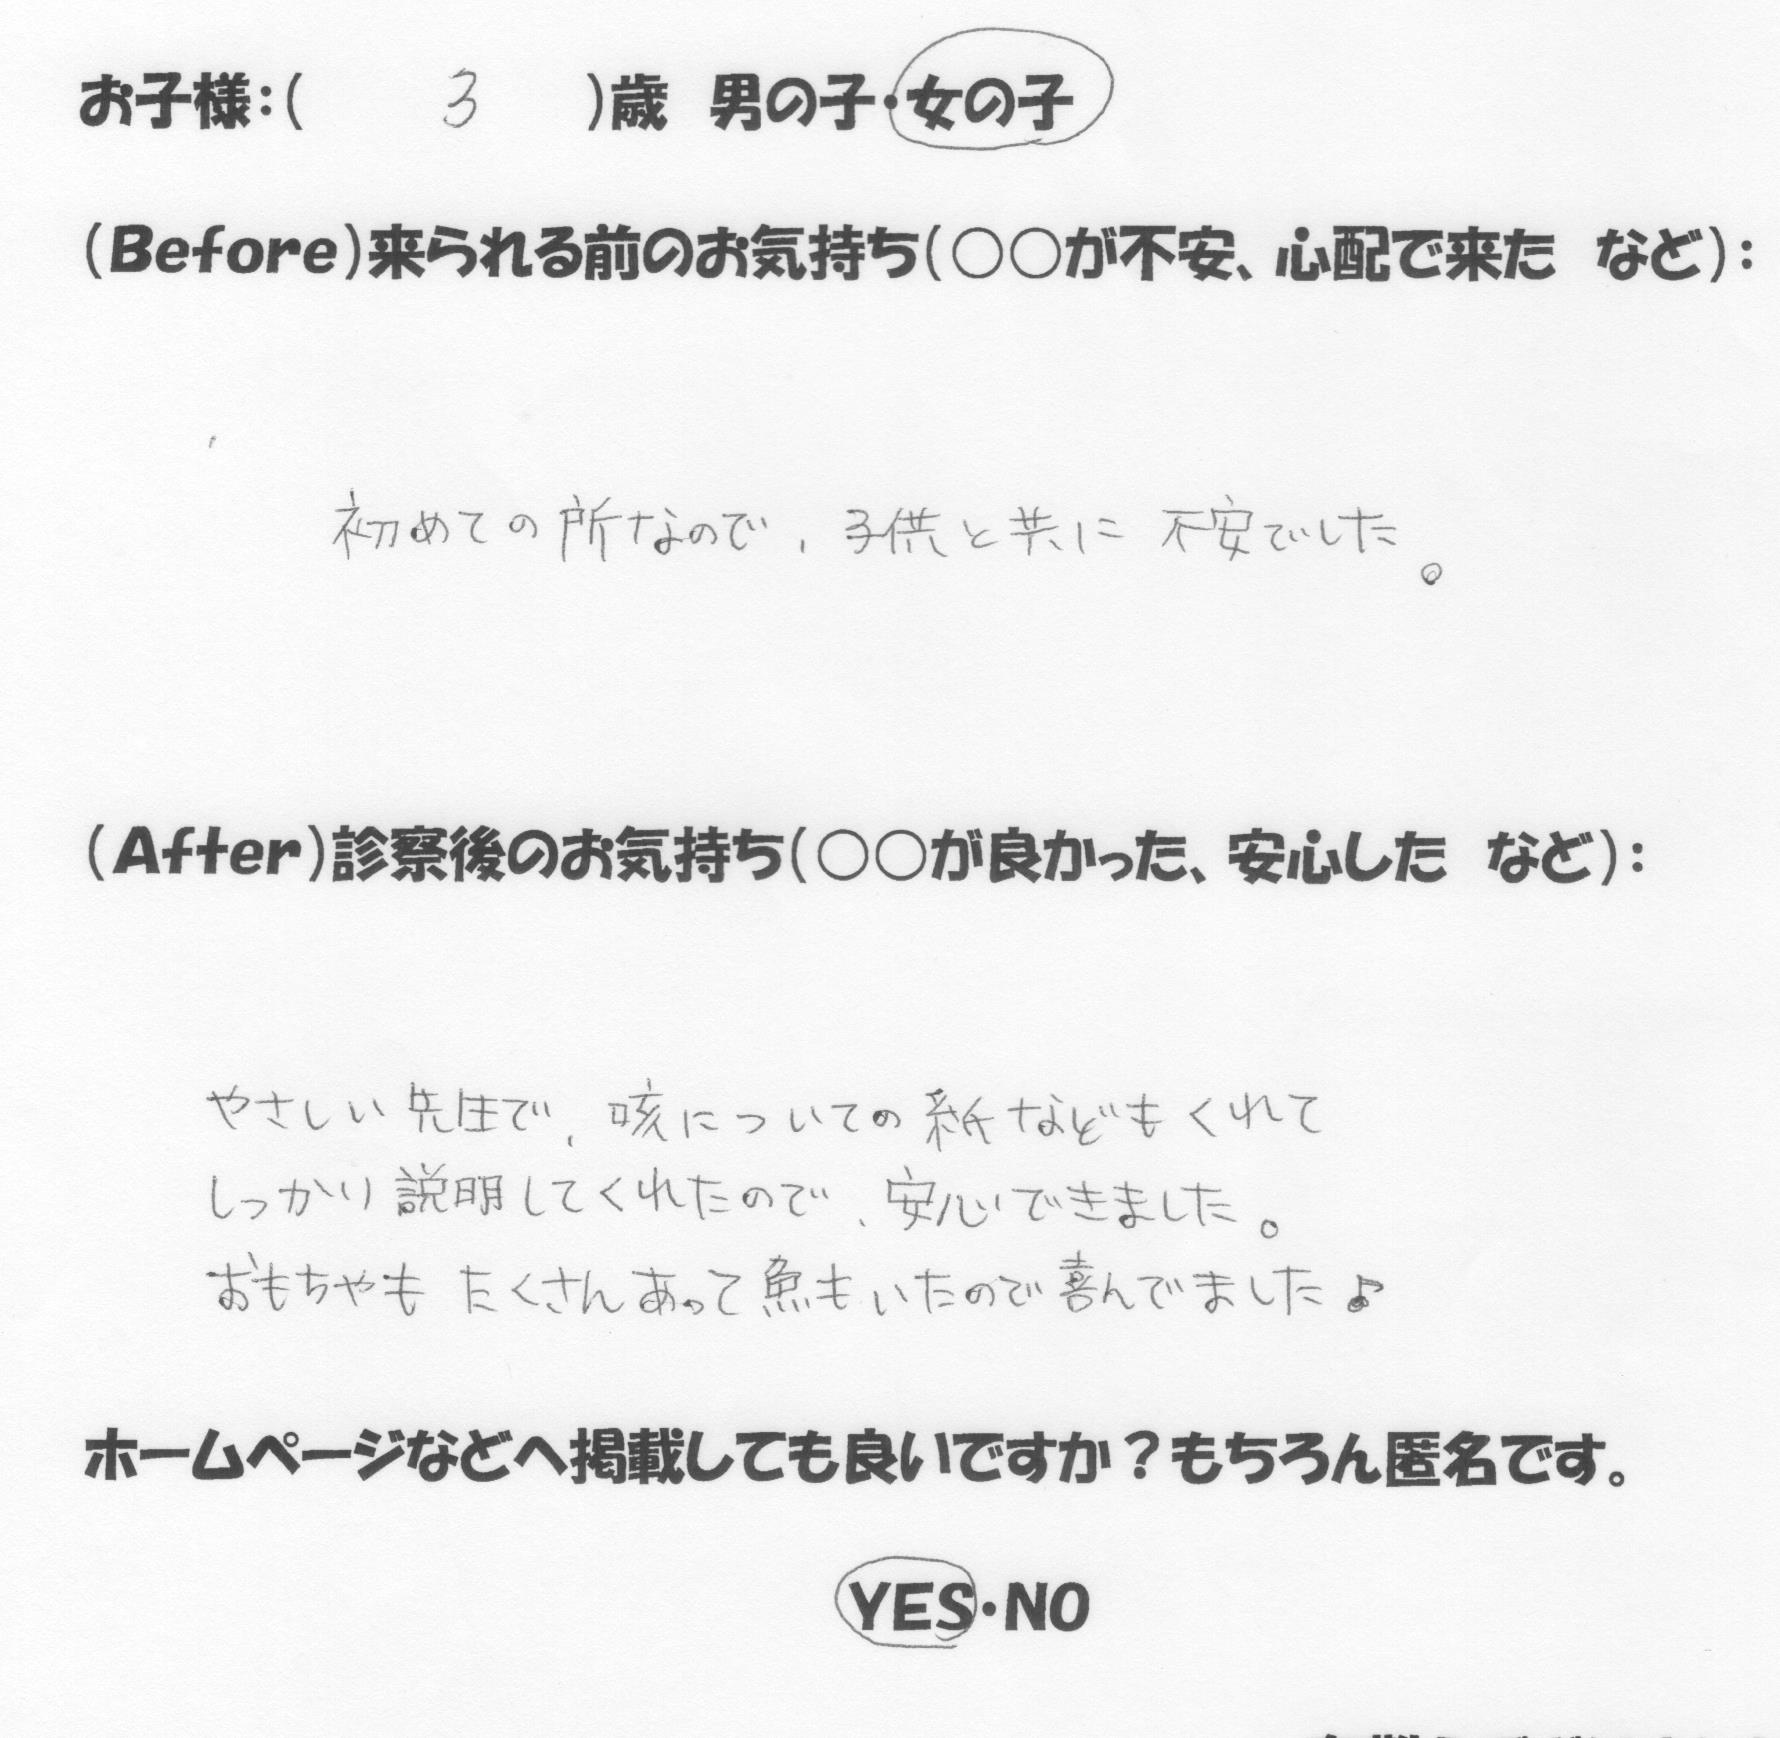 お子様：(　3　)歳　男の子・女の子
(Before)来られる前のお気持ち(○○が不安、心配で来た　など)：
初めての所なので、子供と共に不安でした。
(After)診察後のお気持ち(○○が良かった、安心した　など)：
やさしい先生で、咳についての紙などもくれて
しっかり説明してくれたので、安心できました。
おもちゃもたくさんあって魚もいたので喜んでました♪
ホームページなどへ掲載しても良いですか？もちろん匿名です。
YES・NO